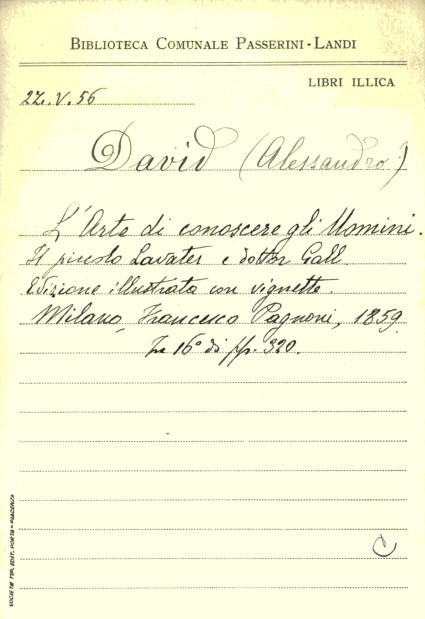 BIBLIOTECA COMUNALE PASSERINI-LANDI
LIBRI ILLICA
22.V.56
David (Alessandro)
L'Arte di conoscere gli Uomini.
Il piccolo Lavater e dottor Gall
Edizione illustrata con vignette.
Milano, Francesco Pagnoni, 1859.
In 16° di pp. 320.
C